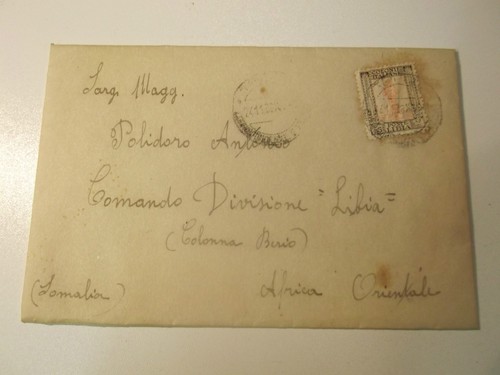 Serg. Magg.
Polidoro Antonio
Comando Divisione "Libia"
(Colonna Berio)
(Somalia) Africa Orientale